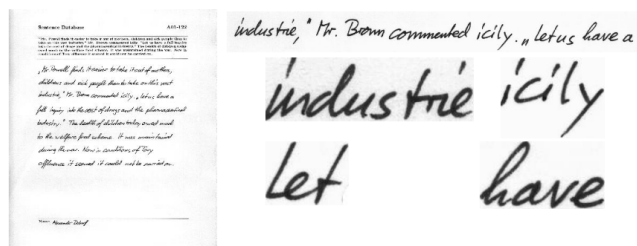 Sentence Database
A01-122
"Mr. Powell finds it easier to take it out of mothers,
children and sick people than to take on this vast
industrie," Mr. Brown commented icily. "Let us have a
full inquiry into the cost of drugs and the pharmaceutical
industry." The health of children today owes much
to the welfare food scheme. It was maintained
during the war. Now in conditions of Tory
affluence it seems it could not be carried on.
Name:
industrie," Mr. Brown commented icily. „Let us have a
industrie icily
Let have